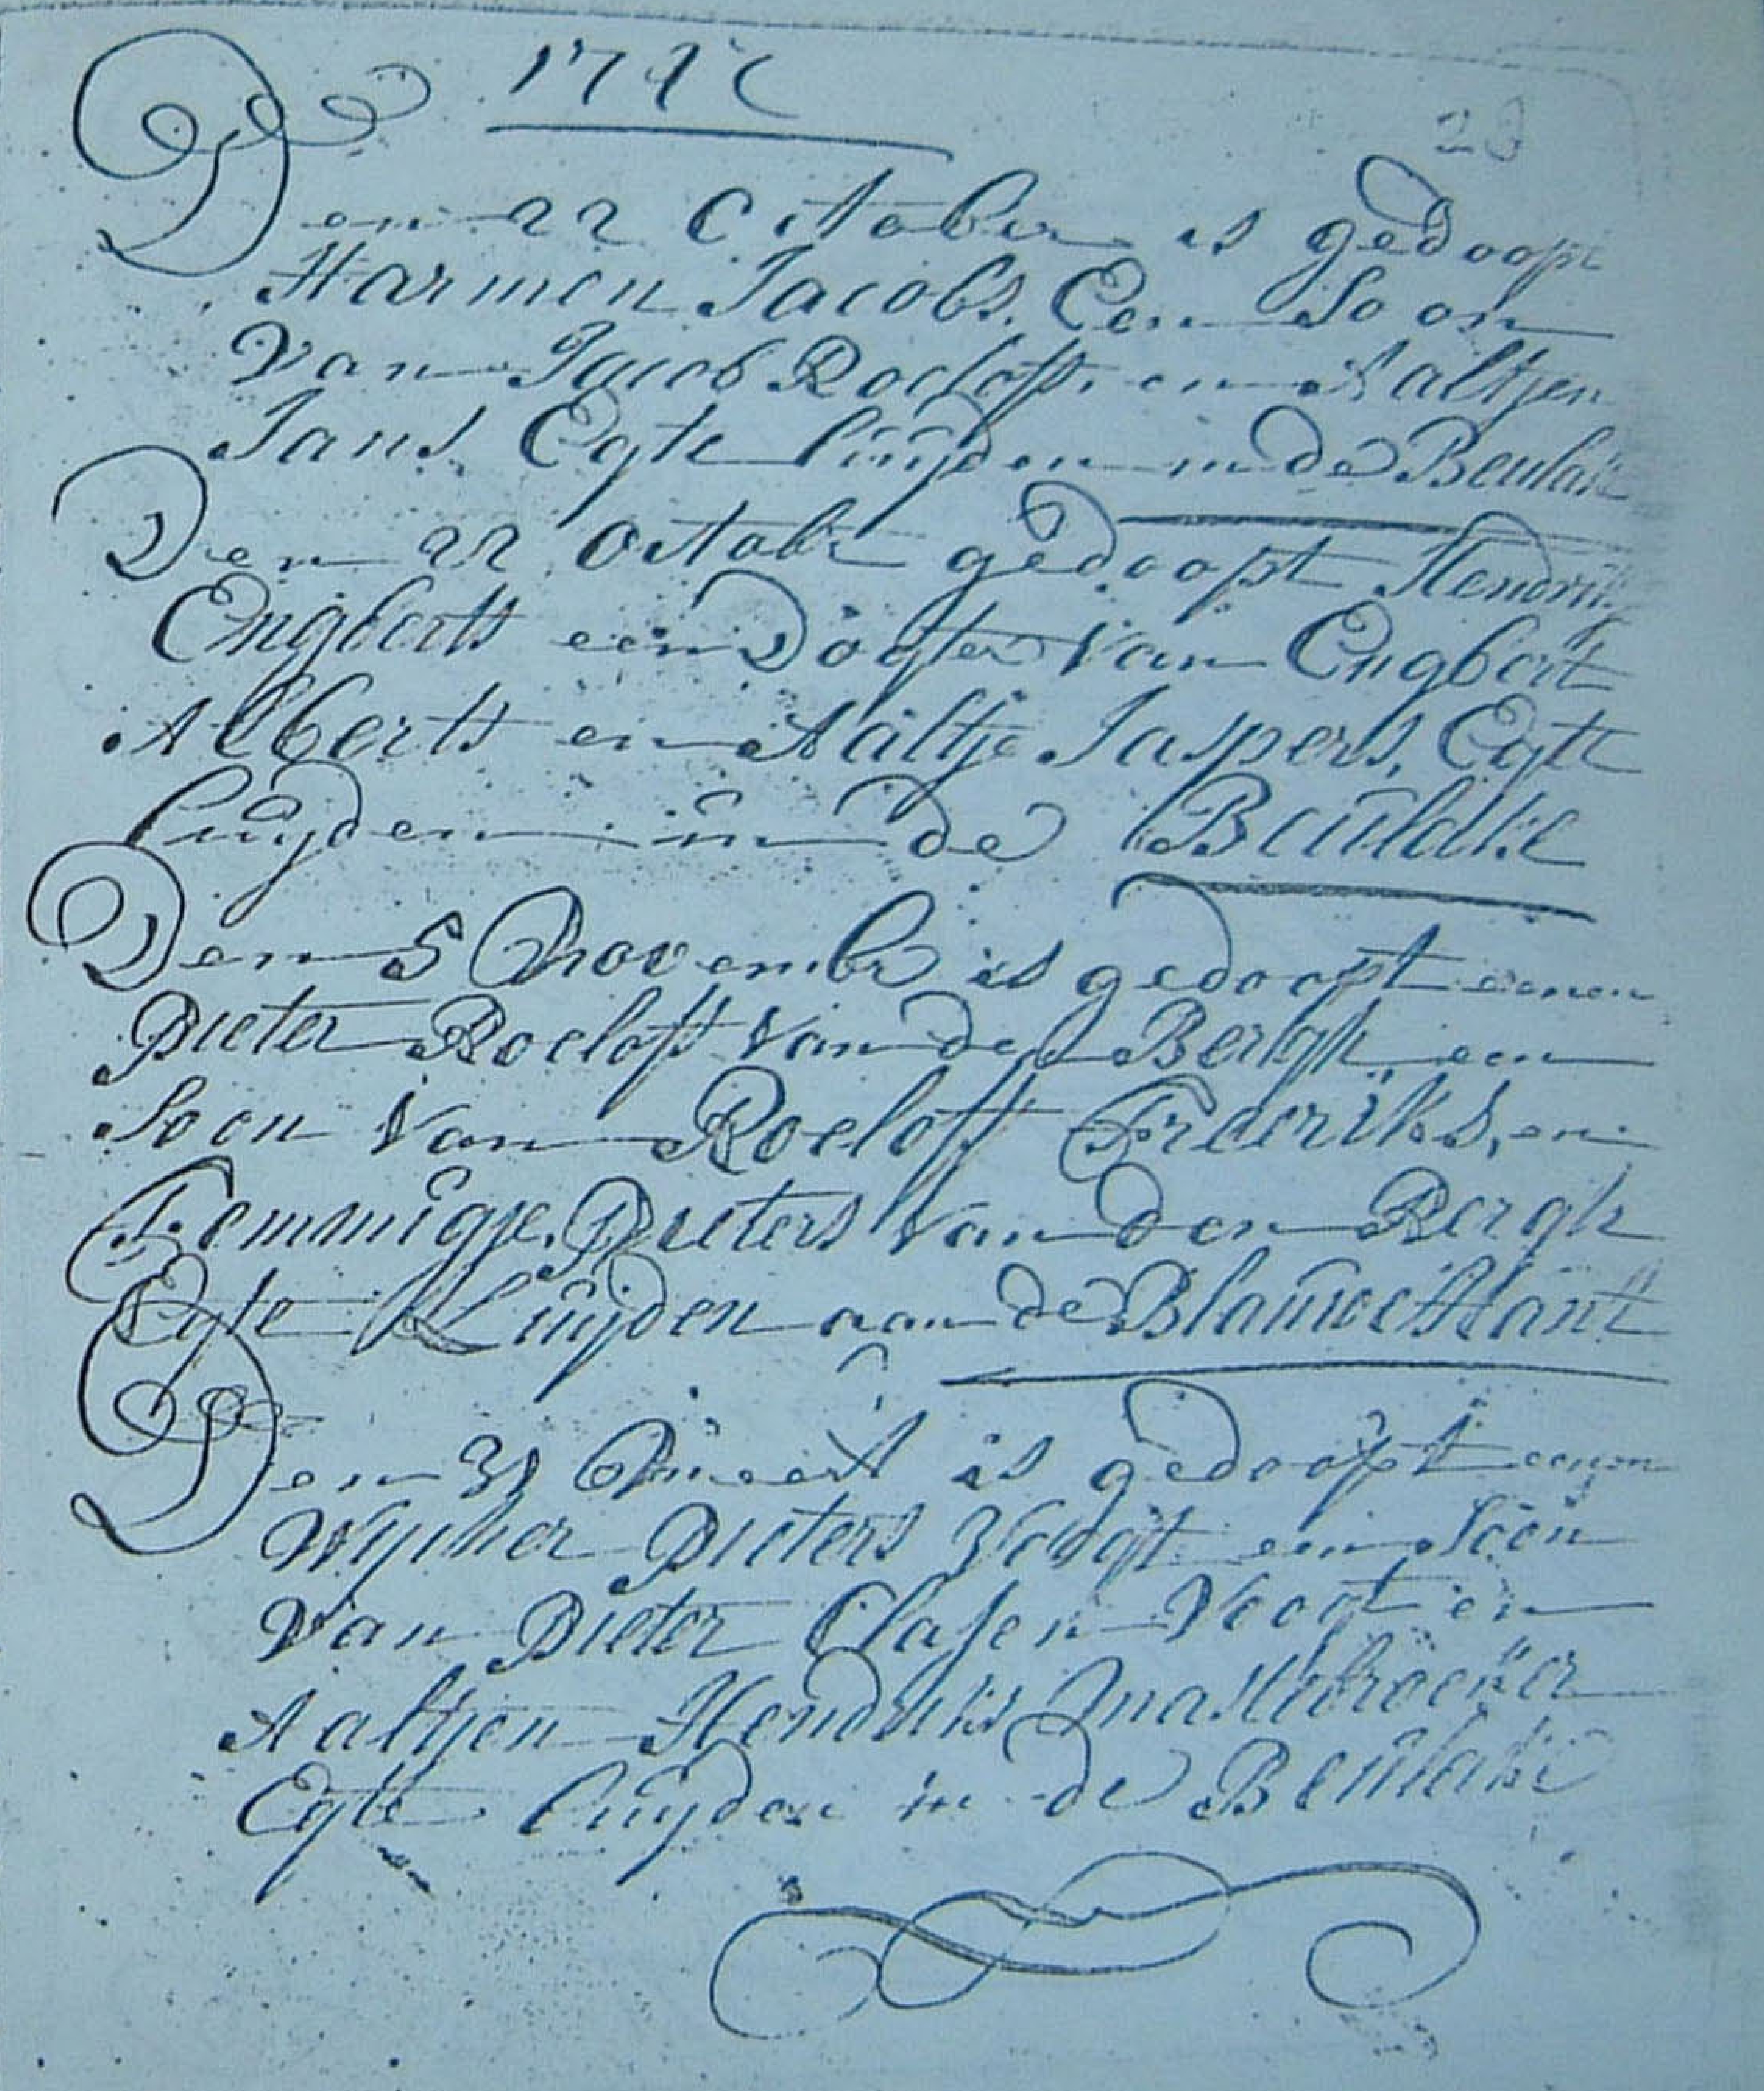 Den 22 October is gedoopt
Harmen Jacobs, Een Soon
Van Jacob Roeloffs, en Aaltjen
Jans, Egte luijden in de Beulake
Den 22 Octobr gedoopt
Engberts een Dogter Van Engbert
Alberts en Aaltje Jaspers, Egte
luijden in de Beulake
Den 5 Novembr is gedoopt eenen
Pieter Roeloff Van den Bergh een
Soon Van Roeloff Frederiks, en
Femmigje Pieters Van den Bergh
Egte Luijden aan de Blauwe Hant
Den is gedoopt eenen
Pieters Voogt een Soon
Van Pieter Clasen Voogt en
Aaltjen Hendriks Mastebroeker
Egte luijden in de Beulake